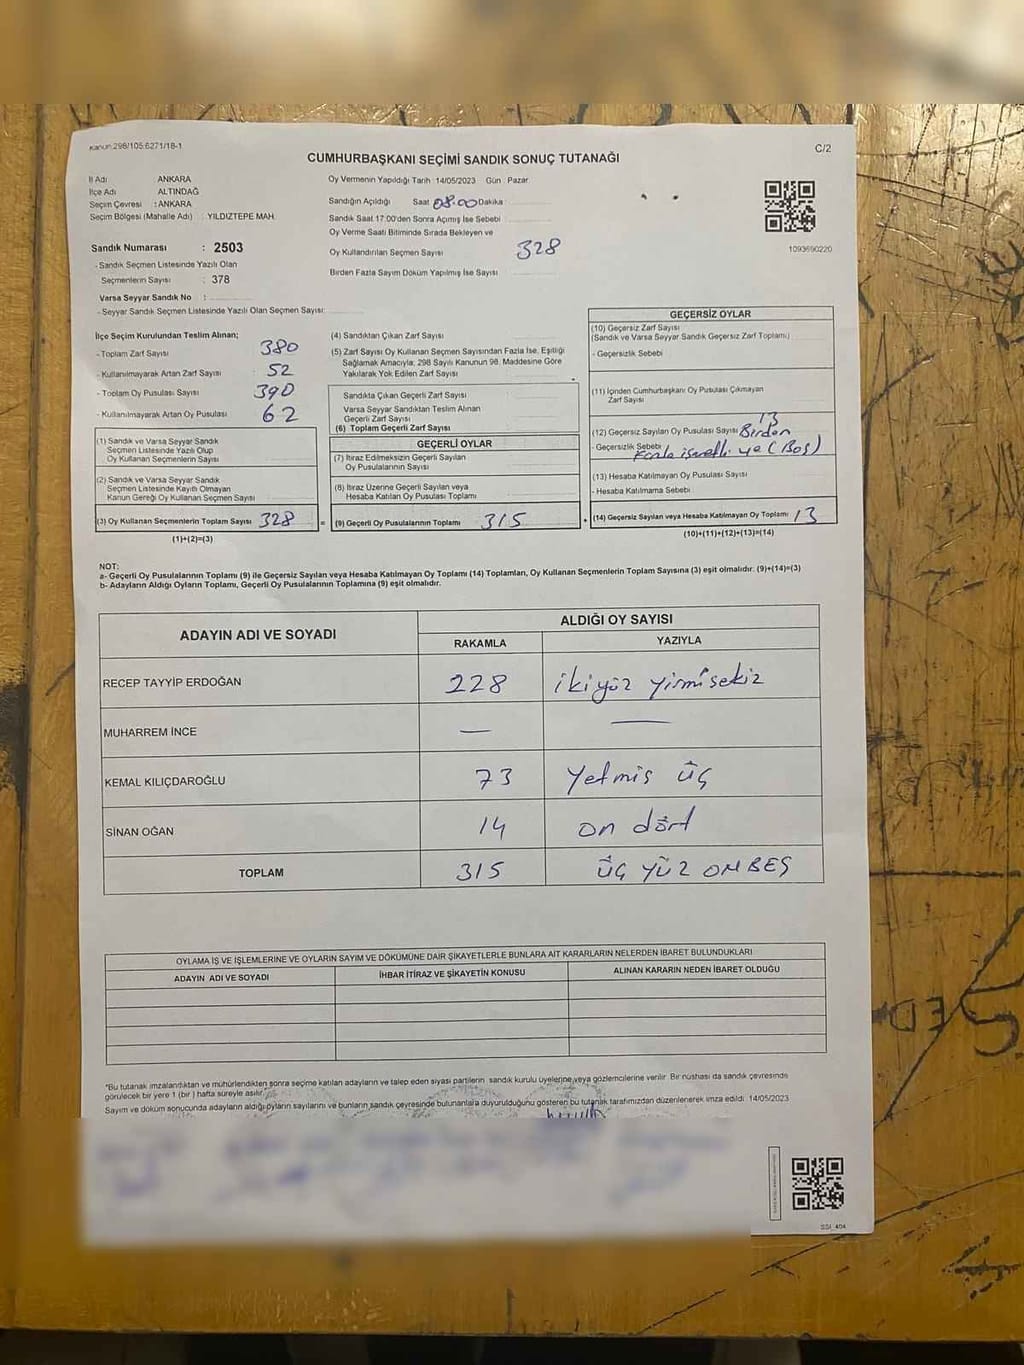 Kanun:298/105:6271/18-1
C/2
CUMHURBAŞKANI SEÇİMİ SANDIK SONUÇ TUTANAĞI
İl Adı ANKARA
İlçe Adı ALTINDAĞ
Seçim Çevresi : ANKARA
Seçim Bölgesi (Mahalle Adı) : YILDIZTEPE MAH.
Sandık Numarası : 2503
- Sandık Seçmen Listesinde Yazılı Olan
Seçmenlerin Sayısı : 378
Varsa Seyyar Sandık No :
- Seyyar Sandık Seçmen Listesinde Yazılı Olan Seçmen Sayısı:
Oy Vermenin Yapıldığı Tarih : 14/05/2023 Gün : Pazar
Sandığın Açıldığı Saat 08.00 Dakika :
Sandık Saat 17:00'den Sonra Açımış İse Sebebi :
Oy Verme Saati Bitiminde Sırada Bekleyen ve
Oy Kullandırılan Seçmen Sayısı 328
Birden Fazla Sayım Döküm Yapılmış İse Sayısı
1093690220
İlçe Seçim Kurulundan Teslim Alınan;
- Toplam Zarf Sayısı 380
- Kullanılmayarak Artan Zarf Sayısı 52
- Toplam Oy Pusulası Sayısı 390
- Kullanılmayarak Artan Oy Pusulası 62
(1) Sandık ve Varsa Seyyar Sandık
Seçmen Listesinde Yazılı Olup
Oy Kullanan Seçmenlerin Sayısı
(2) Sandık ve Varsa Seyyar Sandık
Seçmen Listesinde Kayıtlı Olmayan
Kanun Gereği Oy Kullanan Seçmen Sayısı
(3) Oy Kullanan Seçmenlerin Toplam Sayısı 328
(1)+(2)=(3)
(4) Sandıktan Çıkan Zarf Sayısı
(5) Zarf Sayısı Oy Kullanan Seçmen Sayısından Fazla İse, Eşitliği
Sağlamak Amacıyla, 298 Sayılı Kanunun 98. Maddesine Göre
Yakılarak Yok Edilen Zarf Sayısı
Sandıkta Çıkan Geçerli Zarf Sayısı
Varsa Seyyar Sandıktan Teslim Alınan
Geçerli Zarf Sayısı
(6) Toplam Geçerli Zarf Sayısı
GEÇERLİ OYLAR
(7) İtiraz Edilmeksizin Geçerli Sayılan
Oy Pusulalarının Sayısı
(8) İtiraz Üzerine Geçerli Sayılan veya
Hesaba Katılan Oy Pusulası Toplamı
= (9) Geçerli Oy Pusulalarının Toplamı 315 +
GEÇERSİZ OYLAR
(10) Geçersiz Zarf Sayısı
(Sandık ve Varsa Seyyar Sandık Geçersiz Zarf Toplamı)
- Geçersizlik Sebebi
(11) İçinden Cumhurbaşkanı Oy Pusulası Çıkmayan
Zarf Sayısı
(12) Geçersiz Sayılan Oy Pusulası Sayısı 13
- Geçersizlik Sebebi Birden
Fazla işaretli ve (Boş)
(13) Hesaba Katılmayan Oy Pusulası Sayısı
- Hesaba Katılmama Sebebi
(14) Geçersiz Sayılan veya Hesaba Katılmayan Oy Toplamı 13
(10)+(11)+(12)+(13)=(14)
NOT:
a- Geçerli Oy Pusulalarının Toplamı (9) ile Geçersiz Sayılan veya Hesaba Katılmayan Oy Toplamı (14) Toplamları, Oy Kullanan Seçmenlerin Toplam Sayısına (3) eşit olmalıdır. (9)+(14)=(3)
b- Adayların Aldığı Oyların Toplamı, Geçerli Oy Pusulalarının Toplamına (9) eşit olmalıdır.
ADAYIN ADI VE SOYADI ALDIĞI OY SAYISI
RAKAMLA YAZIYLA
RECEP TAYYİP ERDOĞAN 228 ikiyüz yirmisekiz
MUHARREM İNCE — —
KEMAL KILIÇDAROĞLU 73 Yetmis üç
SİNAN OĞAN 14 on dört
TOPLAM 315 ÜÇ YÜZ ONBEŞ
OYLAMA İŞ VE İŞLEMLERİNE VE OYLARIN SAYIM VE DÖKÜMÜNE DAİR ŞİKAYETLERLE BUNLARA AİT KARARLARIN NELERDEN İBARET BULUNDUKLARI
ADAYIN ADI VE SOYADI İHBAR İTİRAZ VE ŞİKAYETİN KONUSU ALINAN KARARIN NEDEN İBARET OLDUĞU
*Bu tutanak imzalandıktan ve mühürlendikten sonra seçime katılan adayların ve talep eden siyasi partilerin sandık kurulu üyelerine veya gözlemcilerine verilir. Bir nüshası da sandık çevresinde
görülecek bir yere 1 (bir ) hafta süreyle asılır.
Sayım ve döküm sonucunda adayların aldığı oyların sayılarını ve bunların sandık çevresinde bulunanlara duyurulduğunu gösteren bu tutanak tarafımızdan düzenlenerek imza edildi. 14/05/2023
SSI_40A